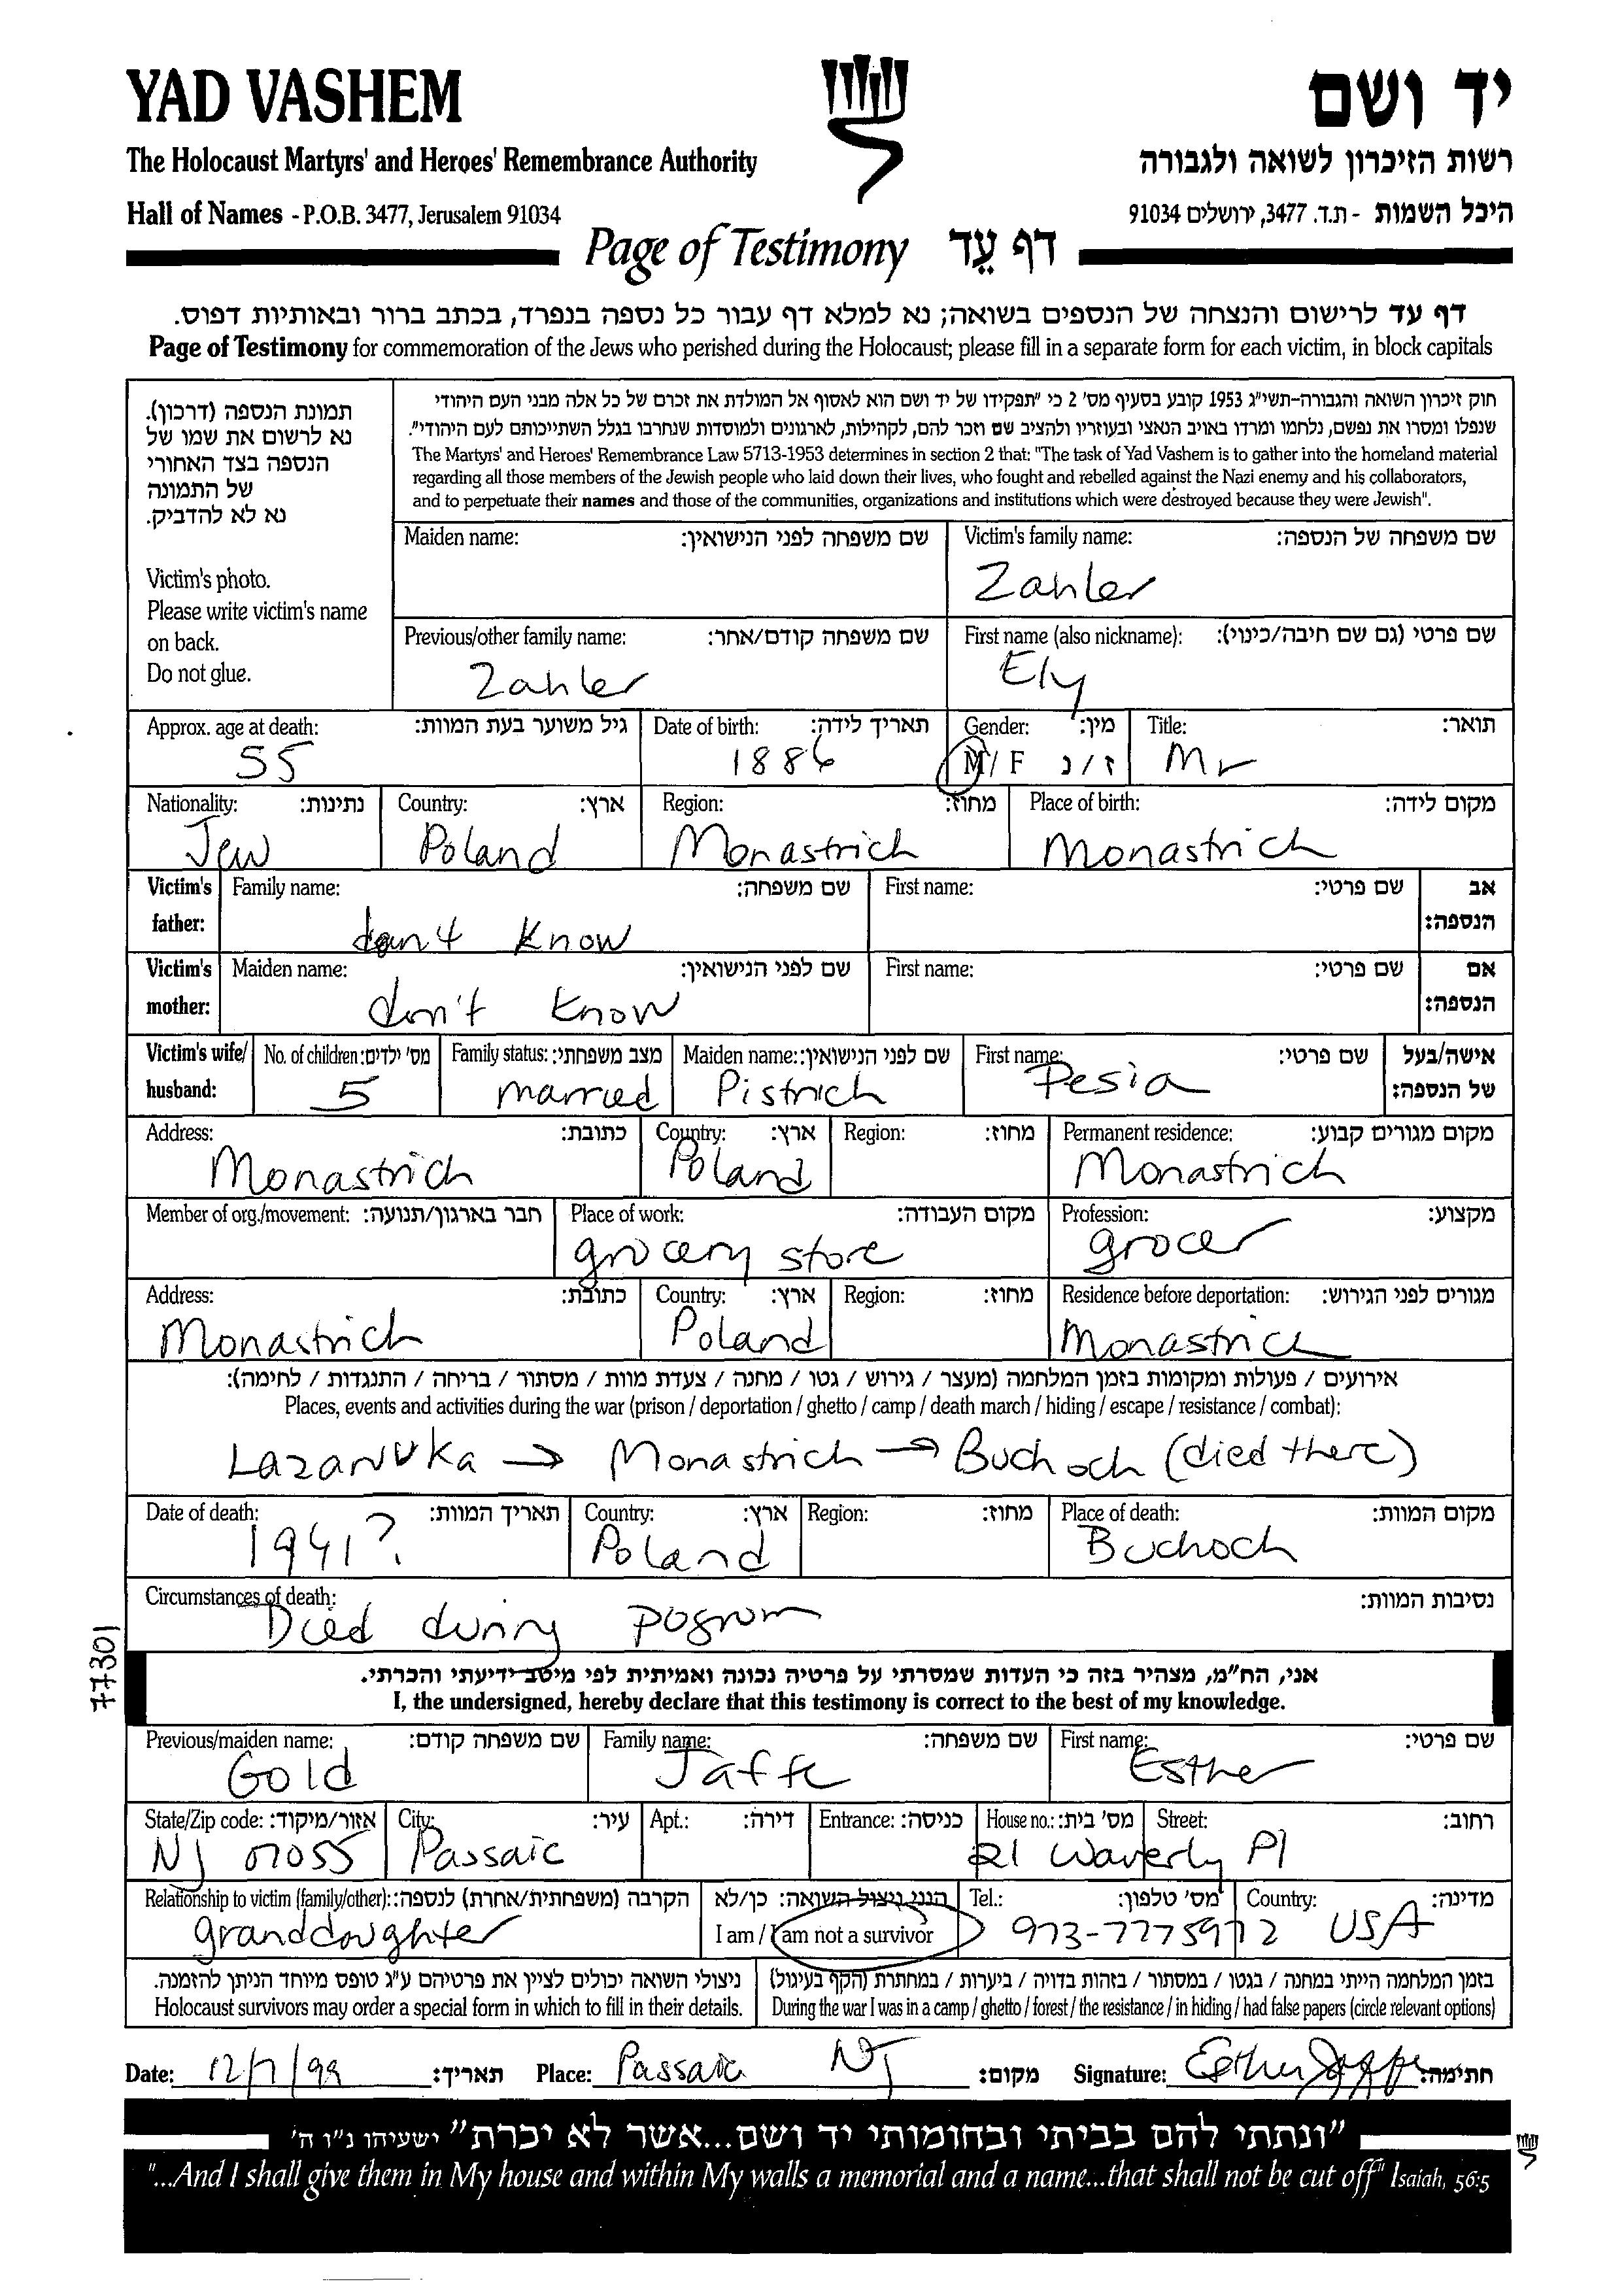 YAD VASHEM
יד ושם
The Holocaust Martyrs' and Heroes' Remembrance Authority
רשות הזיכרון לשואה ולגבורה
Hall of Names - P.O.B. 3477, Jerusalem 91034
היכל השמות - ת.ד. 3477, ירושלים 91034
Page of Testimony דף עֵד
דף עד לרישום והנצחה של הנספים בשואה; נא למלא דף עבור כל נספה בנפרד, בכתב ברור ובאותיות דפוס.
Page of Testimony for commemoration of the Jews who perished during the Holocaust; please fill in a separate form for each victim, in block capitals
תמונת הנספה (דרכון).
נא לרשום את שמו של
הנספה בצד האחורי
של התמונה
נא לא להדביק.
Victim's photo.
Please write victim's name
on back.
Do not glue.
חוק זיכרון השואה והגבורה-תשי"ג 1953 קובע בסעיף מס' 2 כי "תפקידו של יד ושם הוא לאסוף אל המולדת את זכרם של כל אלה מבני העם היהודי
שנפלו ומסרו את נפשם, נלחמו ומרדו באויב הנאצי ובעוזריו ולהציב שם וזכר להם, לקהילות, לארגונים ולמוסדות שנחרבו בגלל השתייכותם לעם היהודי".
The Martyrs' and Heroes' Remembrance Law 5713-1953 determines in section 2 that: "The task of Yad Vashem is to gather into the homeland material
regarding all those members of the Jewish people who laid down their lives, who fought and rebelled against the Nazi enemy and his collaborators,
and to perpetuate their names and those of the communities, organizations and institutions which were destroyed because they were Jewish".
Maiden name: שם משפחה לפני הנישואין: Victim's family name: שם משפחה של הנספה:
Zahler
Previous/other family name: שם משפחה קודם/אחר: First name (also nickname): שם פרטי (גם שם חיבה/כינוי):
Zahler Ely
Approx. age at death: גיל משוער בעת המוות: Date of birth: תאריך לידה: Gender: מין: Title: תואר:
55 1886 M/F ז/נ Mr
Nationality: נתינות: Country: ארץ: Region: מחוז: Place of birth: מקום לידה:
Jew Poland Monastrich Monastrich
Victim's father: Family name: שם משפחה: First name: שם פרטי: אב הנספה:
don't know
Victim's mother: Maiden name: שם לפני הנישואין: First name: שם פרטי: אם הנספה:
don't know
Victim's wife/ husband: No. of children: מס' ילדים: Family status: מצב משפחתי: Maiden name: שם לפני הנישואין: First name: שם פרטי: אישה/בעל של הנספה:
5 married Pistrich Pesia
Address: כתובת: Country: ארץ: Region: מחוז: Permanent residence: מקום מגורים קבוע:
Monastrich Poland Monastrich
Member of org./movement: חבר בארגון/תנועה: Place of work: מקום העבודה: Profession: מקצוע:
grocery store grocer
Address: כתובת: Country: ארץ: Region: מחוז: Residence before deportation: מגורים לפני הגירוש:
Monastrich Poland Monastrich
אירועים / פעולות ומקומות בזמן המלחמה (מעצר / גירוש / גטו / מחנה / צעדת מוות / מסתור / בריחה / התנגדות / לחימה):
Places, events and activities during the war (prison / deportation / ghetto / camp / death march / hiding / escape / resistance / combat):
Lazarvka → Monastrich → Buchoch (died there)
Date of death: תאריך המוות: Country: ארץ: Region: מחוז: Place of death: מקום המוות:
1941? Poland Buchoch
Circumstances of death: נסיבות המוות:
Died during pogrom
77301
אני, הח"מ, מצהיר בזה כי העדות שמסרתי על פרטיה נכונה ואמיתית לפי מיטב ידיעתי והכרתי.
I, the undersigned, hereby declare that this testimony is correct to the best of my knowledge.
Previous/maiden name: שם משפחה קודם: Family name: שם משפחה: First name: שם פרטי:
Gold Jaffe Esther
State/Zip code: אזור/מיקוד: City: עיר: Apt.: דירה: Entrance: כניסה: House no.: מס' בית: Street: רחוב:
NJ 07055 Passaic 21 Waverly Pl
Relationship to victim (family/other): הקרבה (משפחתית/אחרת) לנספה: הנני ניצול השואה: כן/לא Tel.: מס' טלפון: Country: מדינה:
granddaughter I am / I am not a survivor 973-7775972 USA
ניצולי השואה יכולים לציין את פרטיהם ע"ג טופס מיוחד הניתן להזמנה. בזמן המלחמה הייתי במחנה / בגטו / במסתור / בזהות בדויה / ביערות / במחתרת (הקף בעיגול)
Holocaust survivors may order a special form in which to fill in their details. During the war I was in a camp / ghetto / forest / the resistance / in hiding / had false papers (circle relevant options)
Date: 12/7/99 תאריך: Place: Passaic NJ מקום: Signature: Esther Jaffe חתימה:
"ונתתי להם בביתי ובחומותי יד ושם...אשר לא יכרת" ישעיהו נ"ו ה'
"...And I shall give them in My house and within My walls a memorial and a name...that shall not be cut off" Isaiah, 56:5